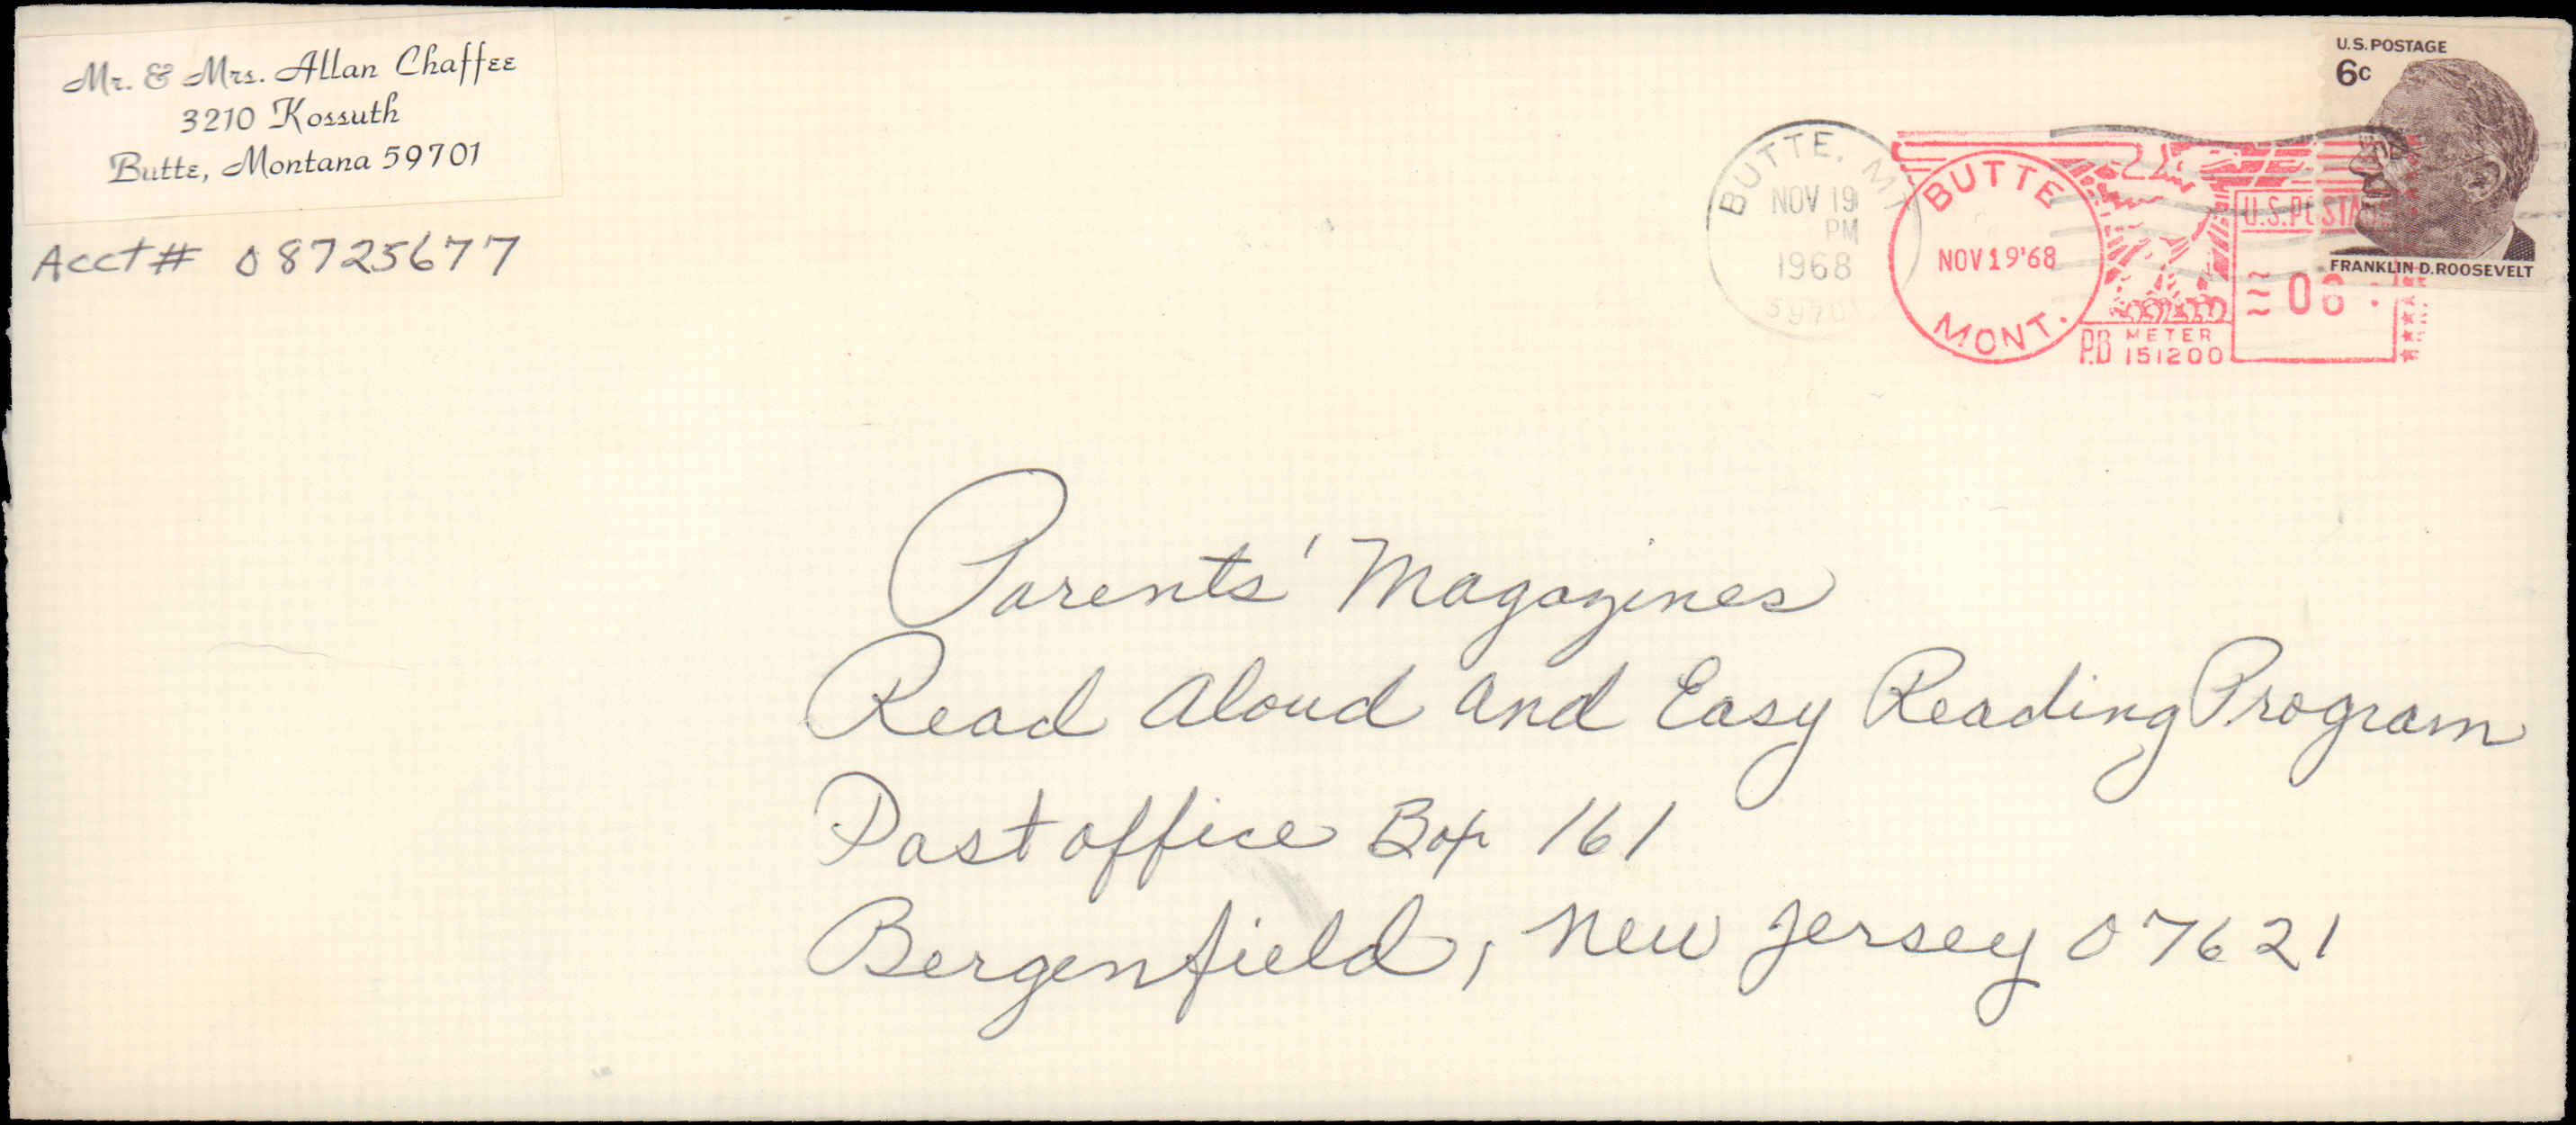 Mr. & Mrs. Allan Chaffee
3210 Kossuth
Butte, Montana 59701
Acct # 08725677
BUTTE, MT
NOV 19
PM
1968
59701
BUTTE
NOV 19 '68
MONT.
P.B. METER
151200
U.S. POSTAGE
U.S. POSTAGE
6c
FRANKLIN D. ROOSEVELT
Parents' Magazines
Read Aloud and Easy Reading Program
Post office Box 161
Bergenfield, New Jersey 07621